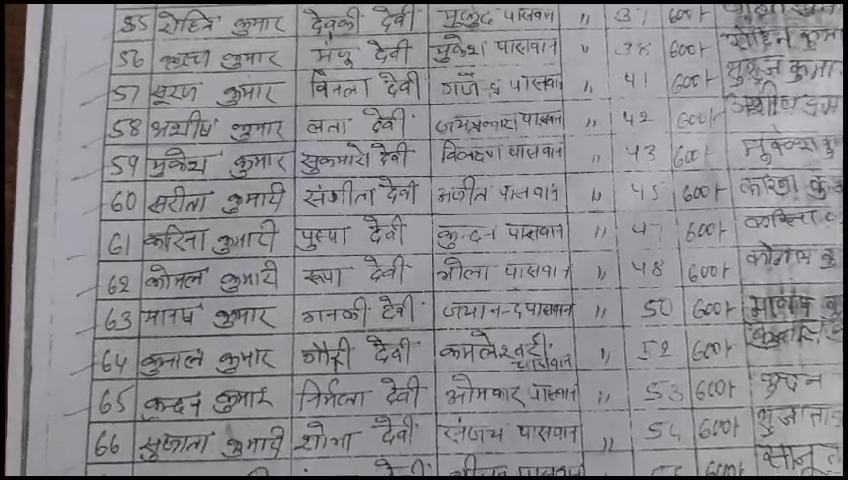 55 रोहित कुमार देवकी देवी मुकुंद पासवान ,, 37 600/-
56 कुमार मंजू देवी मुकेश पासवान ,, 38 600/- रोहित कुमा
57 सूरज कुमार विमला देवी गजेन्द्र पासवान ,, 41 600/- सुरज कुमा
58 आशीष कुमार लता देवी जयप्रकाश पासवान ,, 42 600/-
59 मुकेश कुमार सुकुमारी देवी पासवान ,, 43 600/- मुकेश कु
60 सरीता कुमारी संगीता देवी अजीत पासवान ,, 45 600/-
61 करिना कुमारी पुष्पा देवी कुन्दन पासवान ,, 47 600/-
62 कोमल कुमारी रूपा देवी भोला पासवान ,, 48 600/- कोमल कु
63 मानव कुमार जानकी देवी जयानन्द पासवान ,, 50 600/-
64 कुनाल कुमार गौरी देवी कमलेश्वरी पासवान ,, 52 600/-
65 कुन्दन कुमार निर्मला देवी ओमकार पासवान ,, 53 600/-
66 सुजाता कुमारी शोभा देवी संजय पासवान ,, 54 600/- सुजाता
देवी पासवान 600/- सोनू